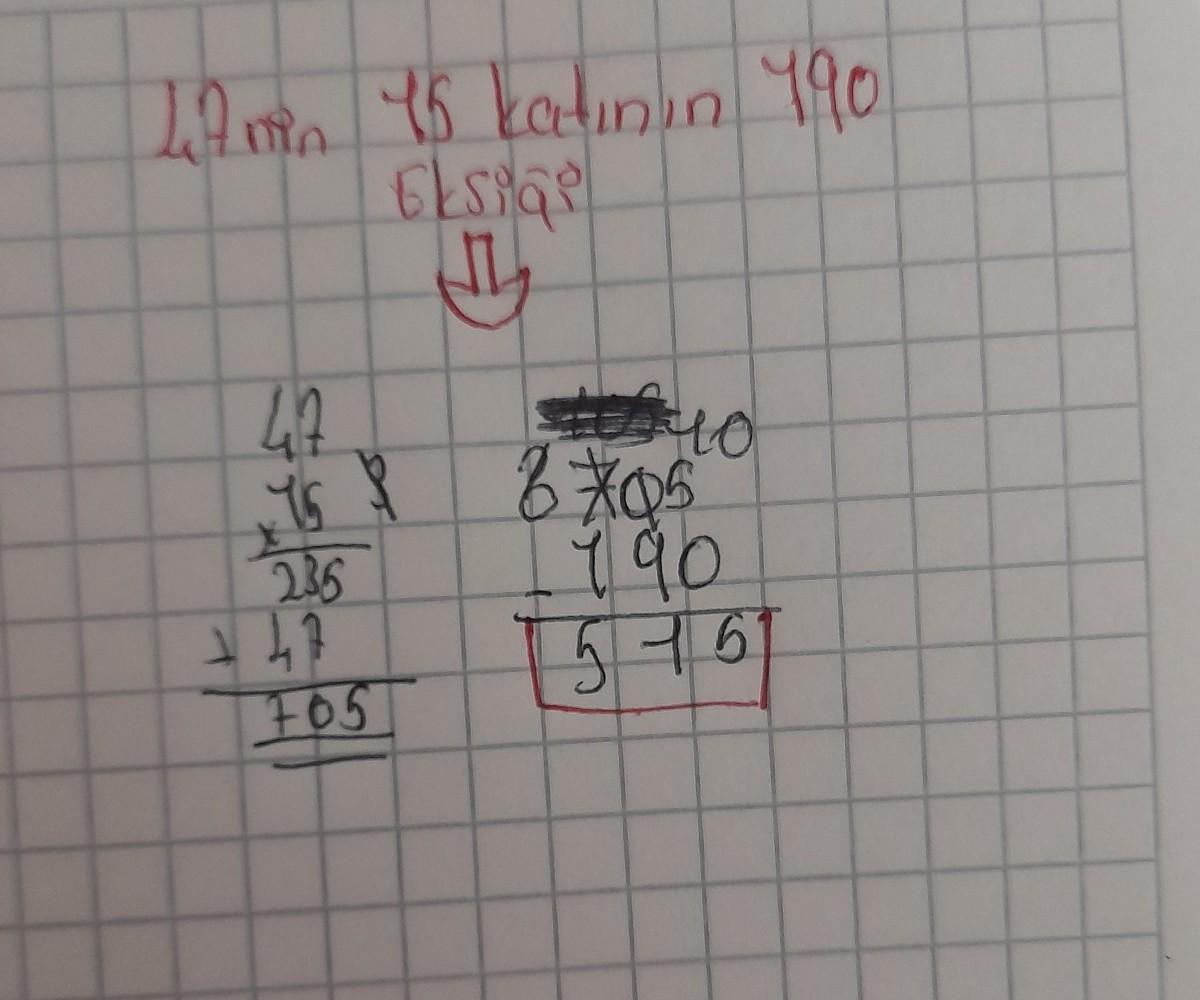 47nin 15 katının 190
Eksiği
47
x 15
235
+ 47
705
10
705
- 190
515